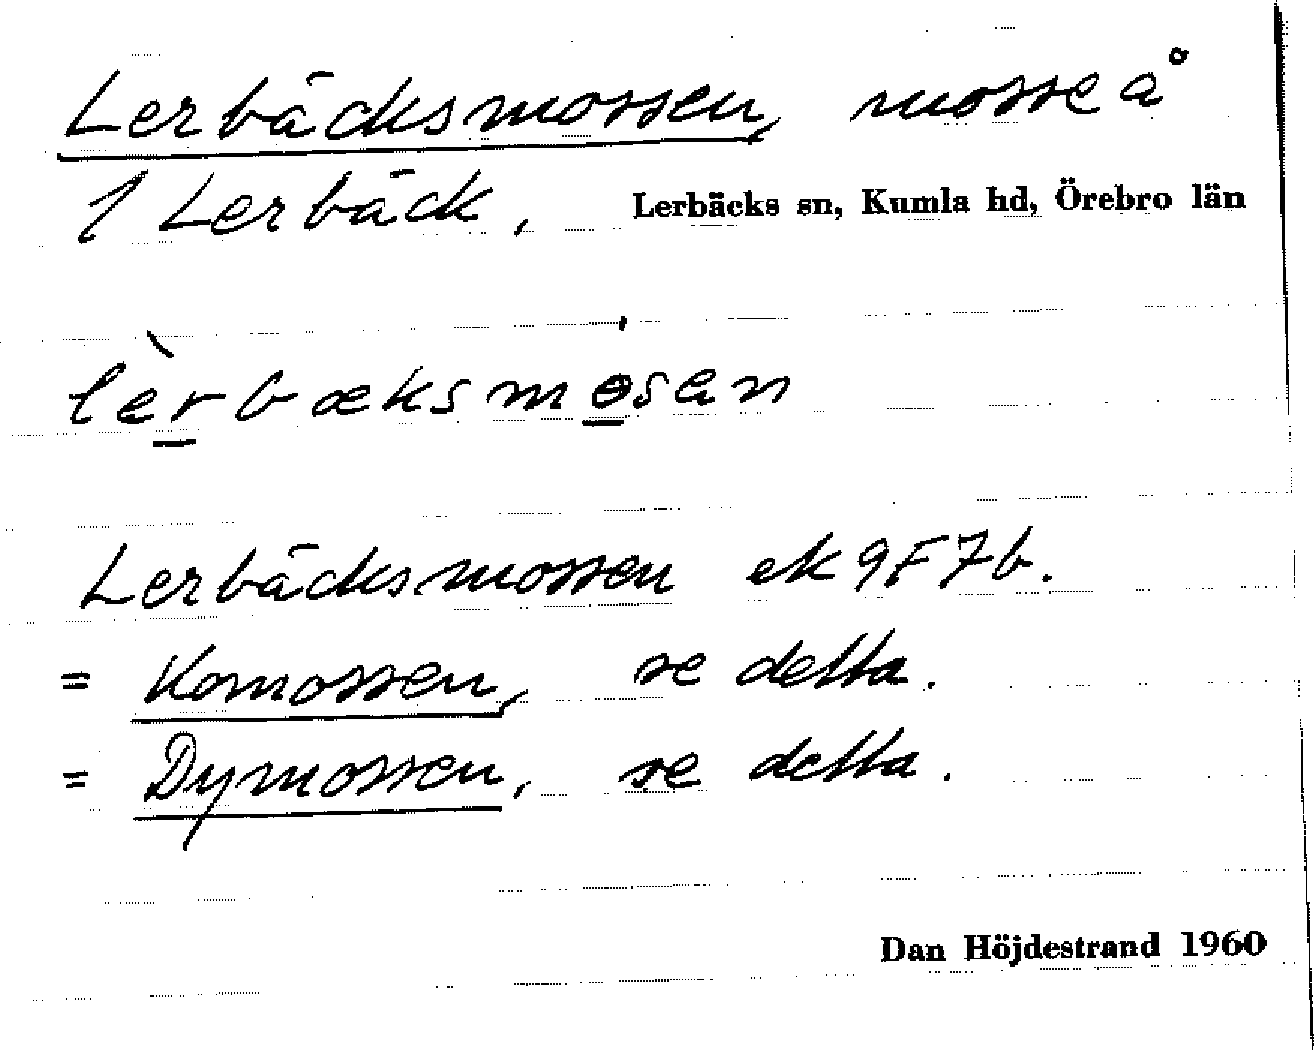 Lerbäcksmossen, mosse å
1 Lerbäck, Lerbäcks sn, Kumla hd, Örebro län
lèrbæksmɵsen
Lerbäcksmossen ek 9F7b.
= Komossen, se detta.
= Dymossen, se detta.
Dan Höjdestrand 1960